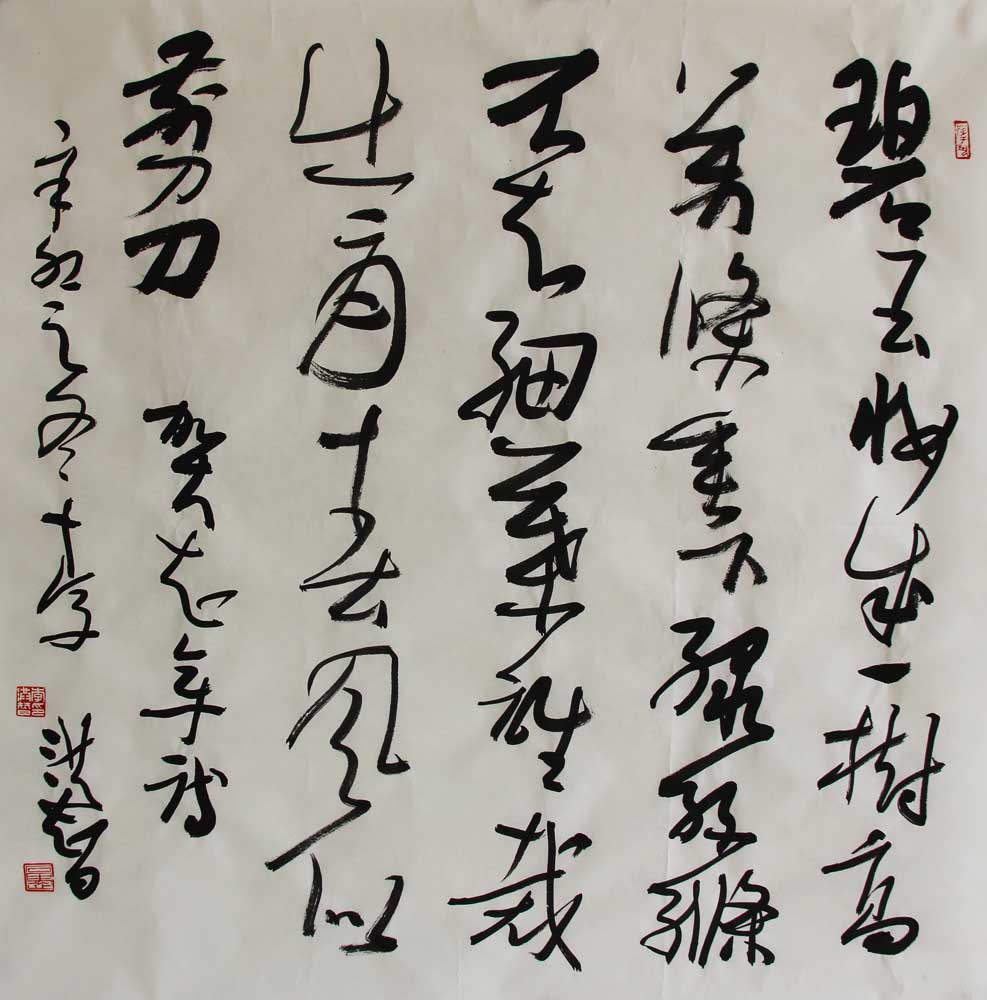 碧玉妝成一樹高
萬條垂下綠絲縧
不知細葉誰裁
出二月春風似
剪刀 賀知章詩
辛卯之冬李洪智